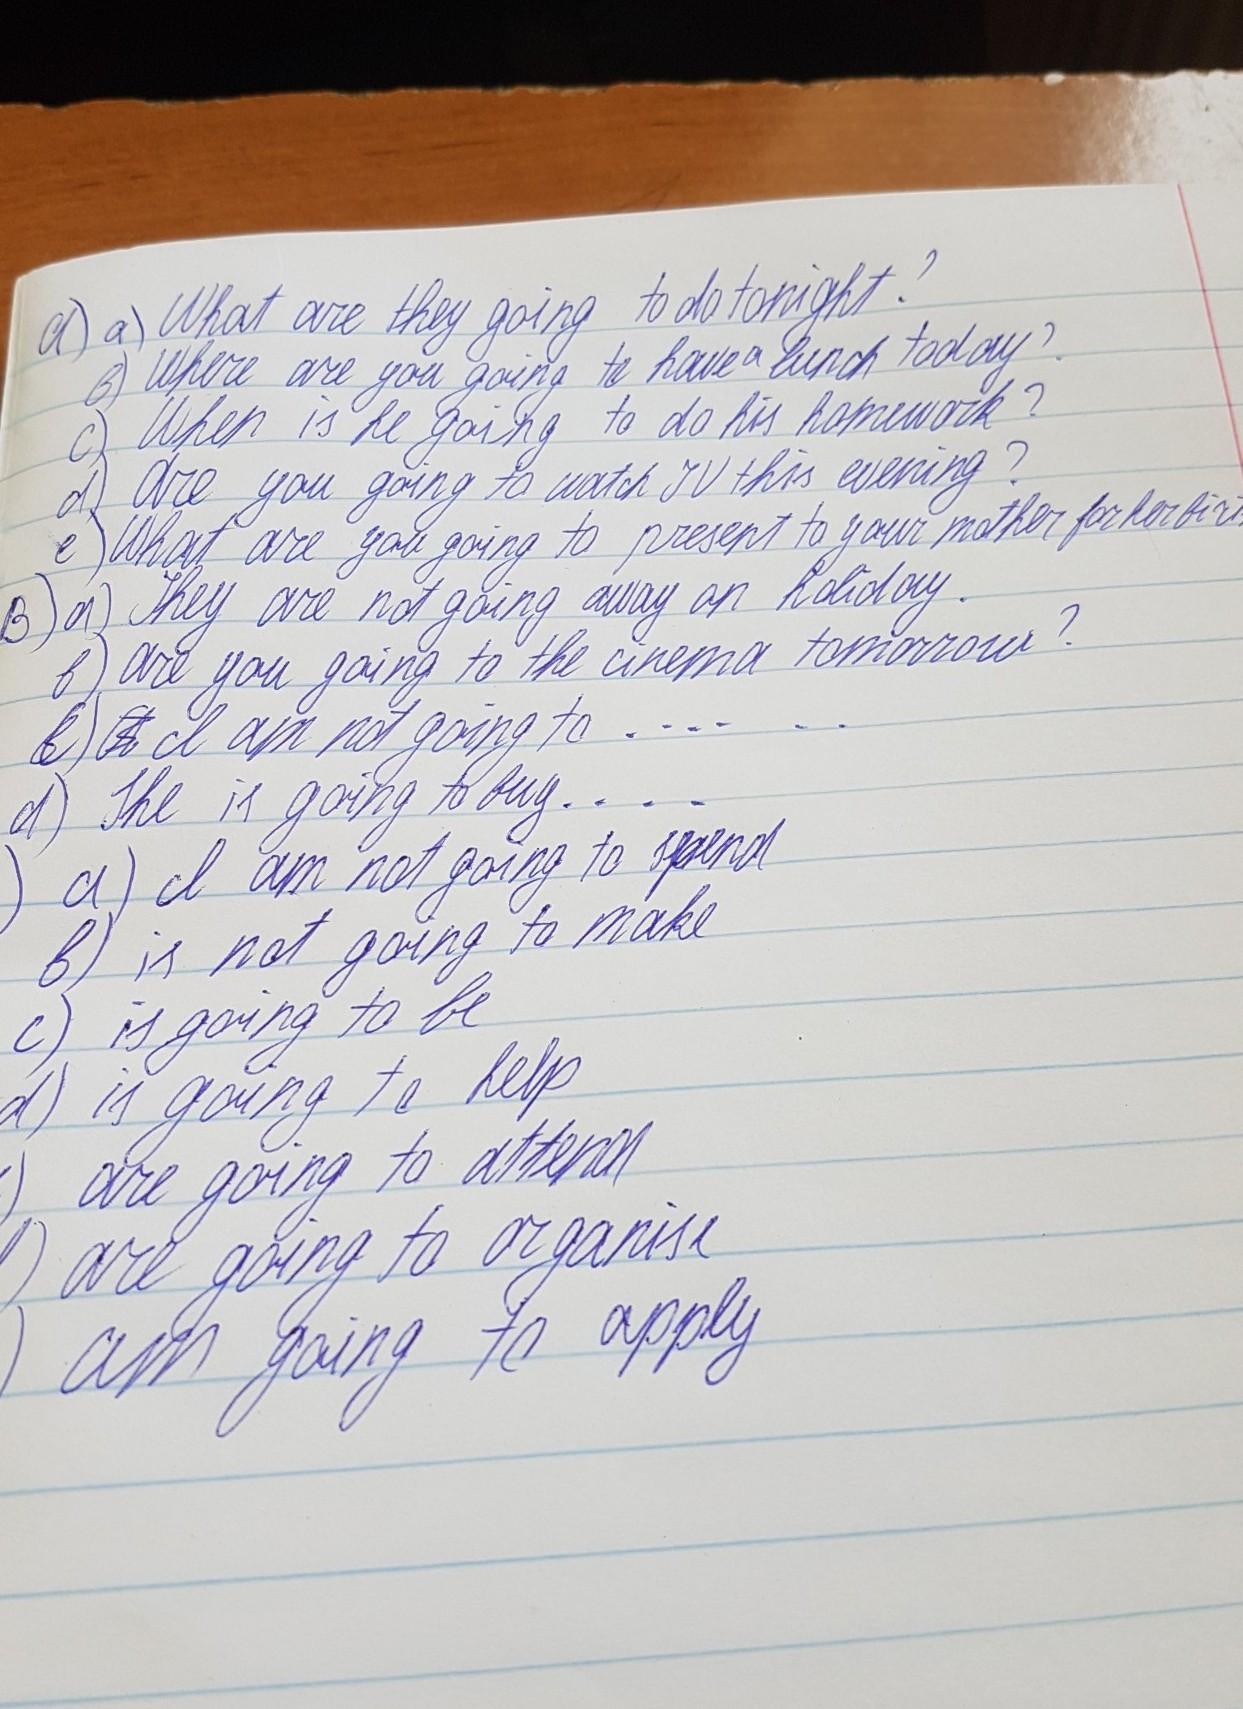 A) a) What are they going to do tonight?
b) Where are you going to have a lunch today?
c) When is he going to do his homework?
d) Are you going to watch TV this evening?
e) What are you going to present to your mother for her
B) a) They are not going away on holiday.
b) Are you going to the cinema tomorrow?
c) I am not going to .... ...
d) She is going to buy.....
) a) I am not going to spend
b) is not going to make
c) is going to be
d) is going to help
) are going to attend
) are going to organise
) am going to apply